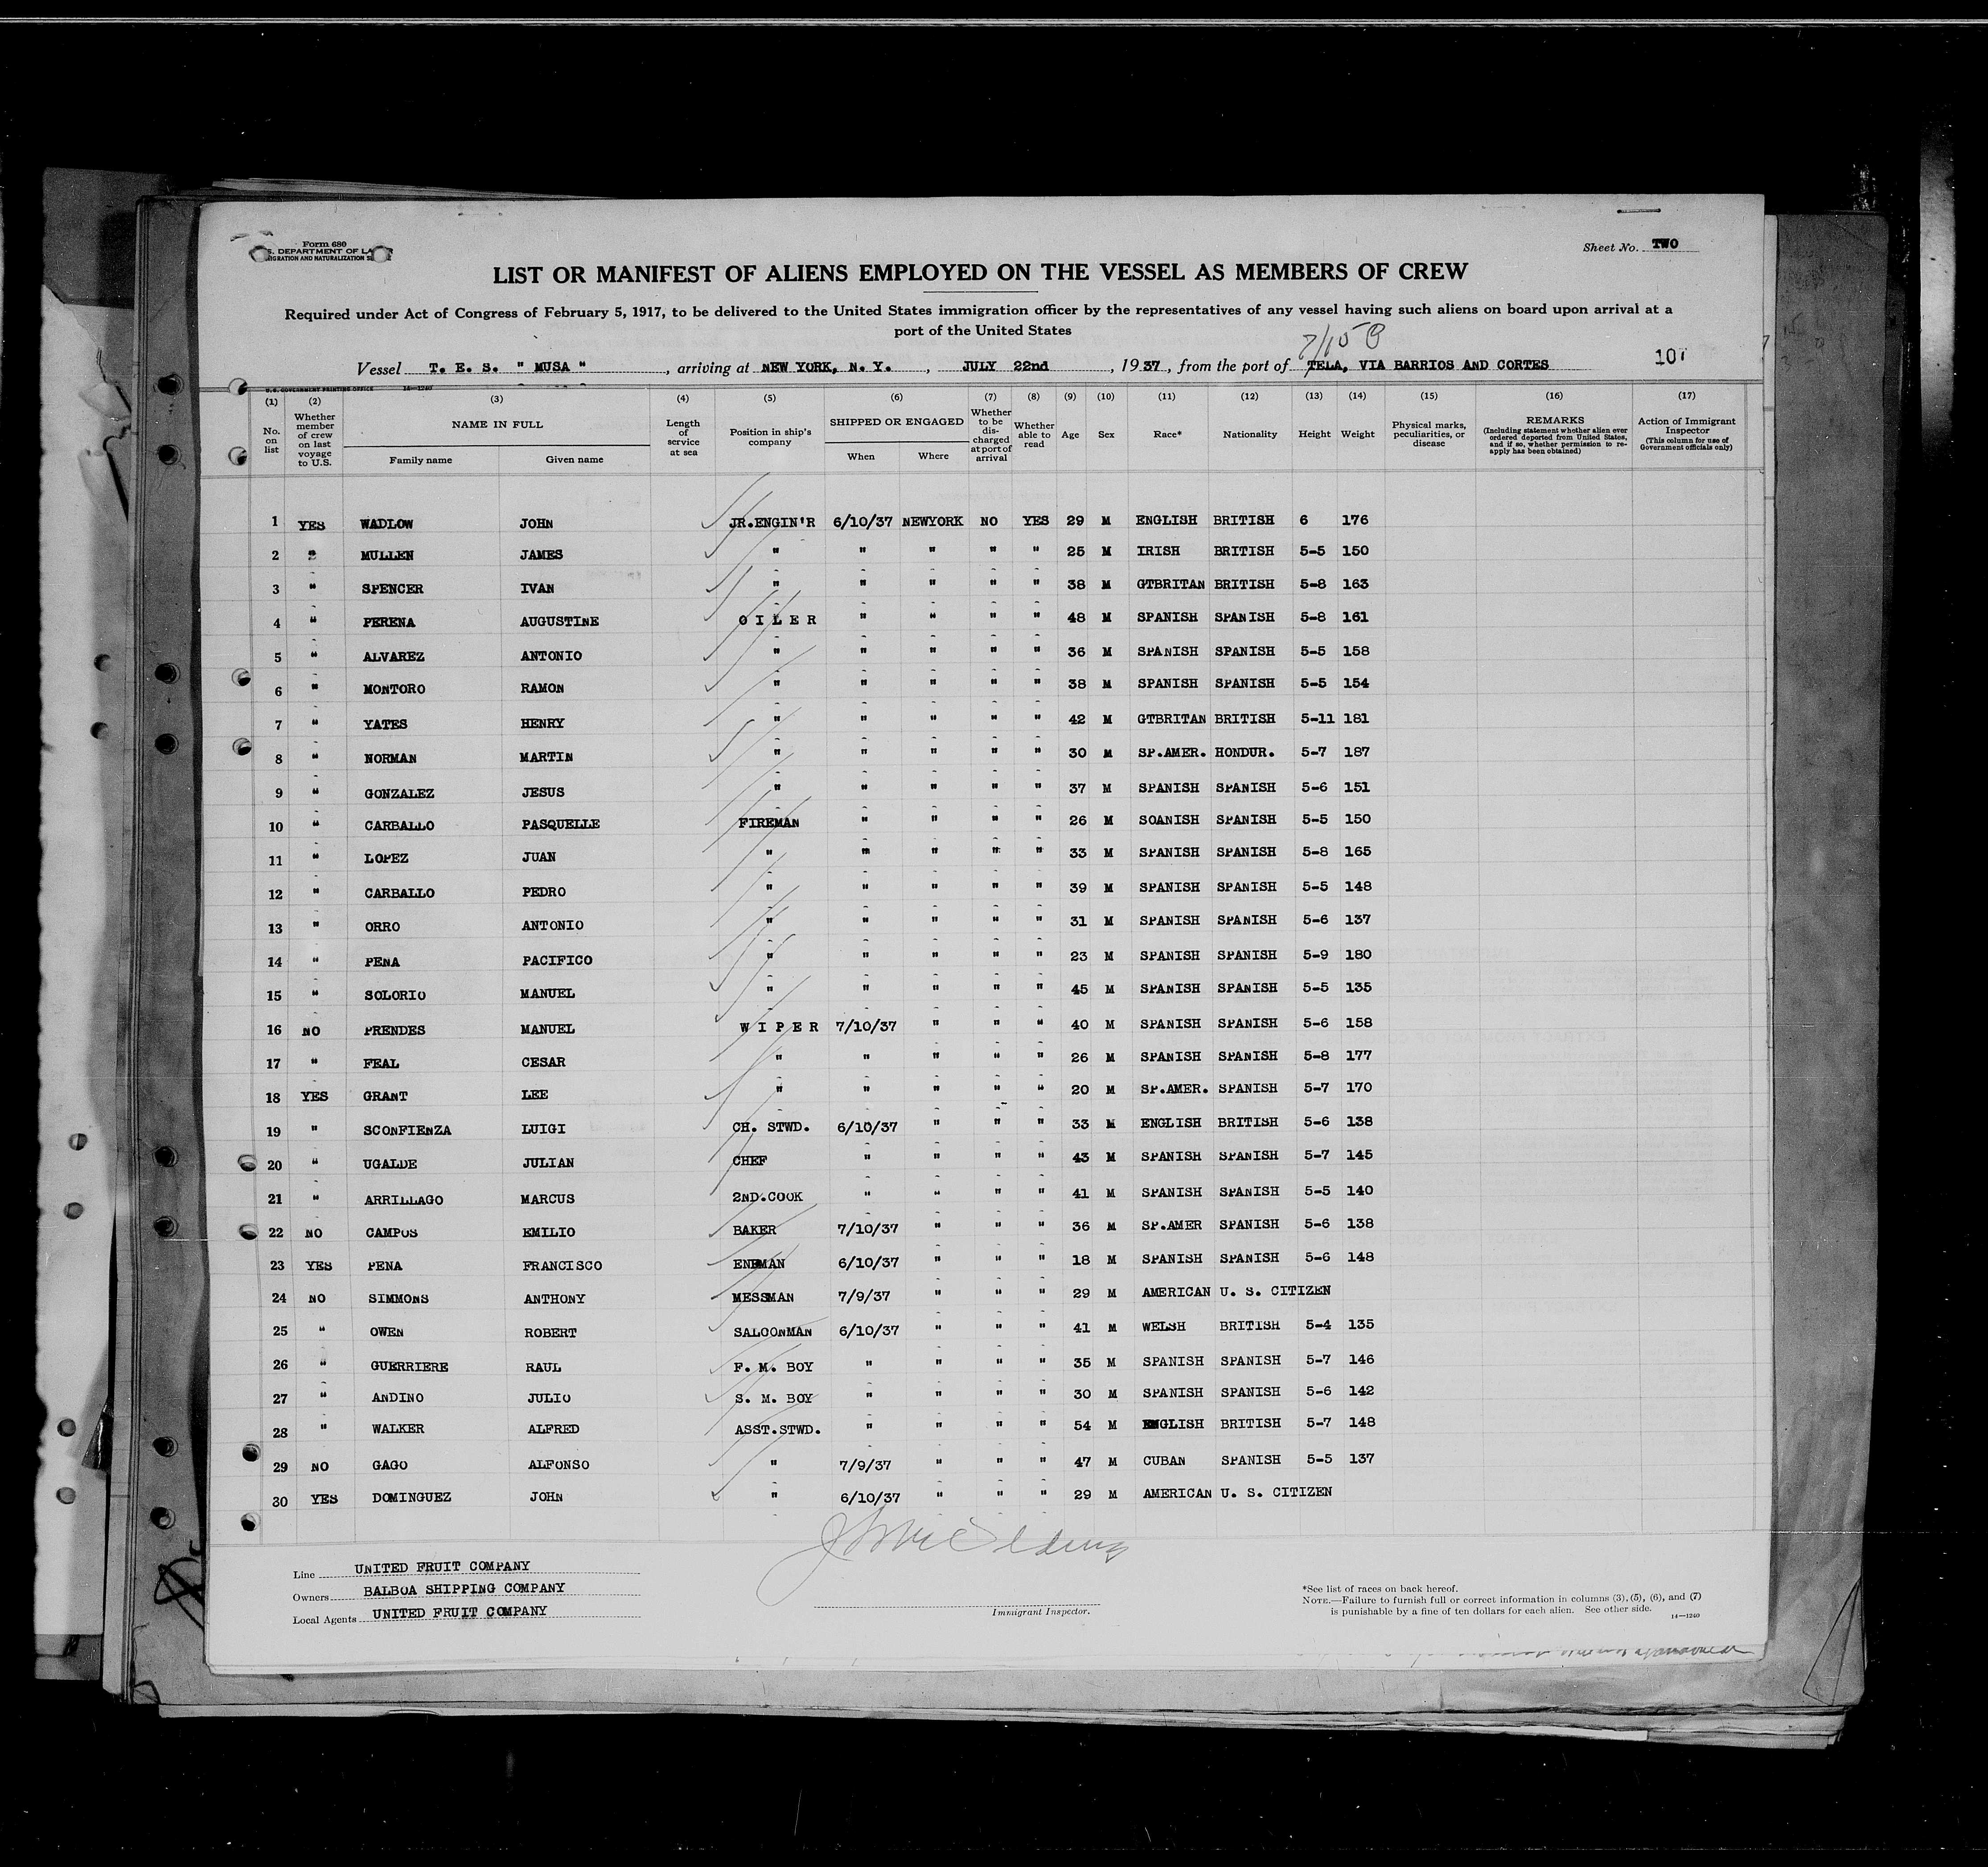 Form 680
S. DEPARTMENT OF LA
IGRATION AND NATURALIZATION S
Sheet No. TWO
LIST OR MANIFEST OF ALIENS EMPLOYED ON THE VESSEL AS MEMBERS OF CREW
Required under Act of Congress of February 5, 1917, to be delivered to the United States immigration officer by the representatives of any vessel having such aliens on board upon arrival at a
port of the United States
Vessel T. E. S. " MUSA " , arriving at NEW YORK, N. Y. , JULY 22nd , 1937, from the port of TELA, VIA BARRIOS AND CORTES 107
U.S. GOVERNMENT PRINTING OFFICE 14—1240
(1) (2) (3) (4) (5) (6) (7) (8) (9) (10) (11) (12) (13) (14) (15) (16) (17)
No. on list Whether member of crew on last voyage to U.S. NAME IN FULL Family name Given name Length of service at sea Position in ship's company SHIPPED OR ENGAGED When Where Whether to be discharged at port of arrival Whether able to read Age Sex Race* Nationality Height Weight Physical marks, peculiarities, or disease REMARKS (Including statement whether alien ever ordered deported from United States, and if so, whether permission to reapply has been obtained) Action of Immigrant Inspector (This column for use of Government officials only)
1 YES WADLOW JOHN JR.ENGIN'R 6/10/37 NEWYORK NO YES 29 M ENGLISH BRITISH 6 176
2 " MULLEN JAMES " " " " " 25 M IRISH BRITISH 5-5 150
3 " SPENCER IVAN " " " " " 38 M GTBRITAN BRITISH 5-8 163
4 " PERENA AUGUSTINE O I L E R " " " " 48 M SPANISH SPANISH 5-8 161
5 " ALVAREZ ANTONIO " " " " " 36 M SPANISH SPANISH 5-5 158
6 " MONTORO RAMON " " " " " 38 M SPANISH SPANISH 5-5 154
7 " YATES HENRY " " " " " 42 M GTBRITAN BRITISH 5-11 181
8 " NORMAN MARTIN " " " " " 30 M SP.AMER. HONDUR. 5-7 187
9 " GONZALEZ JESUS " " " " " 37 M SPANISH SPANISH 5-6 151
10 " CARBALLO PASQUELLE FIREMAN " " " " 26 M SOANISH SPANISH 5-5 150
11 " LOPEZ JUAN " " " " " 33 M SPANISH SPANISH 5-8 165
12 " CARBALLO PEDRO " " " " " 39 M SPANISH SPANISH 5-5 148
13 " ORRO ANTONIO " " " " " 31 M SPANISH SPANISH 5-6 137
14 " PENA PACIFICO " " " " " 23 M SPANISH SPANISH 5-9 180
15 " SOLORIO MANUEL " " " " " 45 M SPANISH SPANISH 5-5 135
16 NO PRENDES MANUEL W I P E R 7/10/37 " " " 40 M SPANISH SPANISH 5-6 158
17 " FEAL CESAR " " " " " 26 M SPANISH SPANISH 5-8 177
18 YES GRANT LEE " " " " " 20 M SP.AMER. SPANISH 5-7 170
19 " SCONFIENZA LUIGI CH. STWD. 6/10/37 " " " 33 M ENGLISH BRITISH 5-6 138
20 " UGALDE JULIAN CHEF " " " " 43 M SPANISH SPANISH 5-7 145
21 " ARRILLAGO MARCUS 2ND.COOK " " " " 41 M SPANISH SPANISH 5-5 140
22 NO CAMPOS EMILIO BAKER 7/10/37 " " " 36 M SP.AMER SPANISH 5-6 138
23 YES PENA FRANCISCO 6/10/37 " " " 18 M SPANISH SPANISH 5-6 148
24 NO SIMMONS ANTHONY MESSMAN 7/9/37 " " " 29 M AMERICAN U. S. CITIZEN
25 " OWEN ROBERT SALOONMAN 6/10/37 " " " 41 M WELSH BRITISH 5-4 135
26 " GUERRIERE RAUL F. M. BOY " " " " 35 M SPANISH SPANISH 5-7 146
27 " ANDINO JULIO S. M. BOY " " " " 30 M SPANISH SPANISH 5-6 142
28 " WALKER ALFRED ASST.STWD. " " " " 54 M ENGLISH BRITISH 5-7 148
29 NO GAGO ALFONSO " 7/9/37 " " " 47 M CUBAN SPANISH 5-5 137
30 YES DOMINGUEZ JOHN " 6/10/37 " " " 29 M AMERICAN U. S. CITIZEN
Line UNITED FRUIT COMPANY
Owners BALBOA SHIPPING COMPANY
Local Agents UNITED FRUIT COMPANY
Immigrant Inspector.
*See list of races on back hereof.
NOTE.—Failure to furnish full or correct information in columns (3), (5), (6), and (7)
is punishable by a fine of ten dollars for each alien. See other side.
14—1240